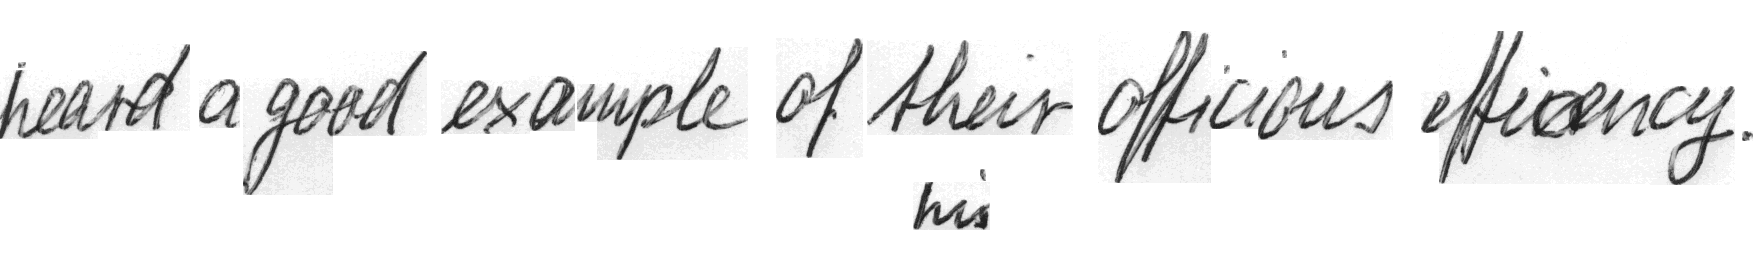 heard a good example of their officious efficency.
his